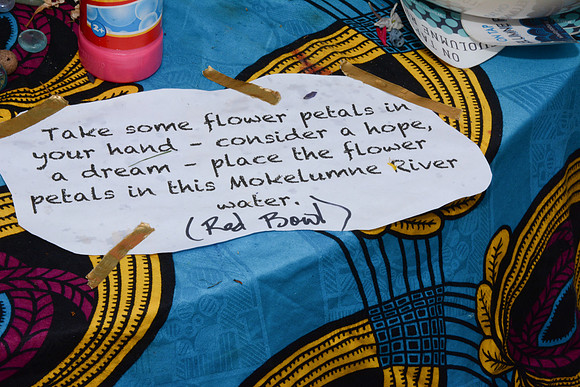 Take some flower petals in
your hand - consider a hope,
a dream - place the flower
petals in this Mokelumne River
water.
(Red Bowl)